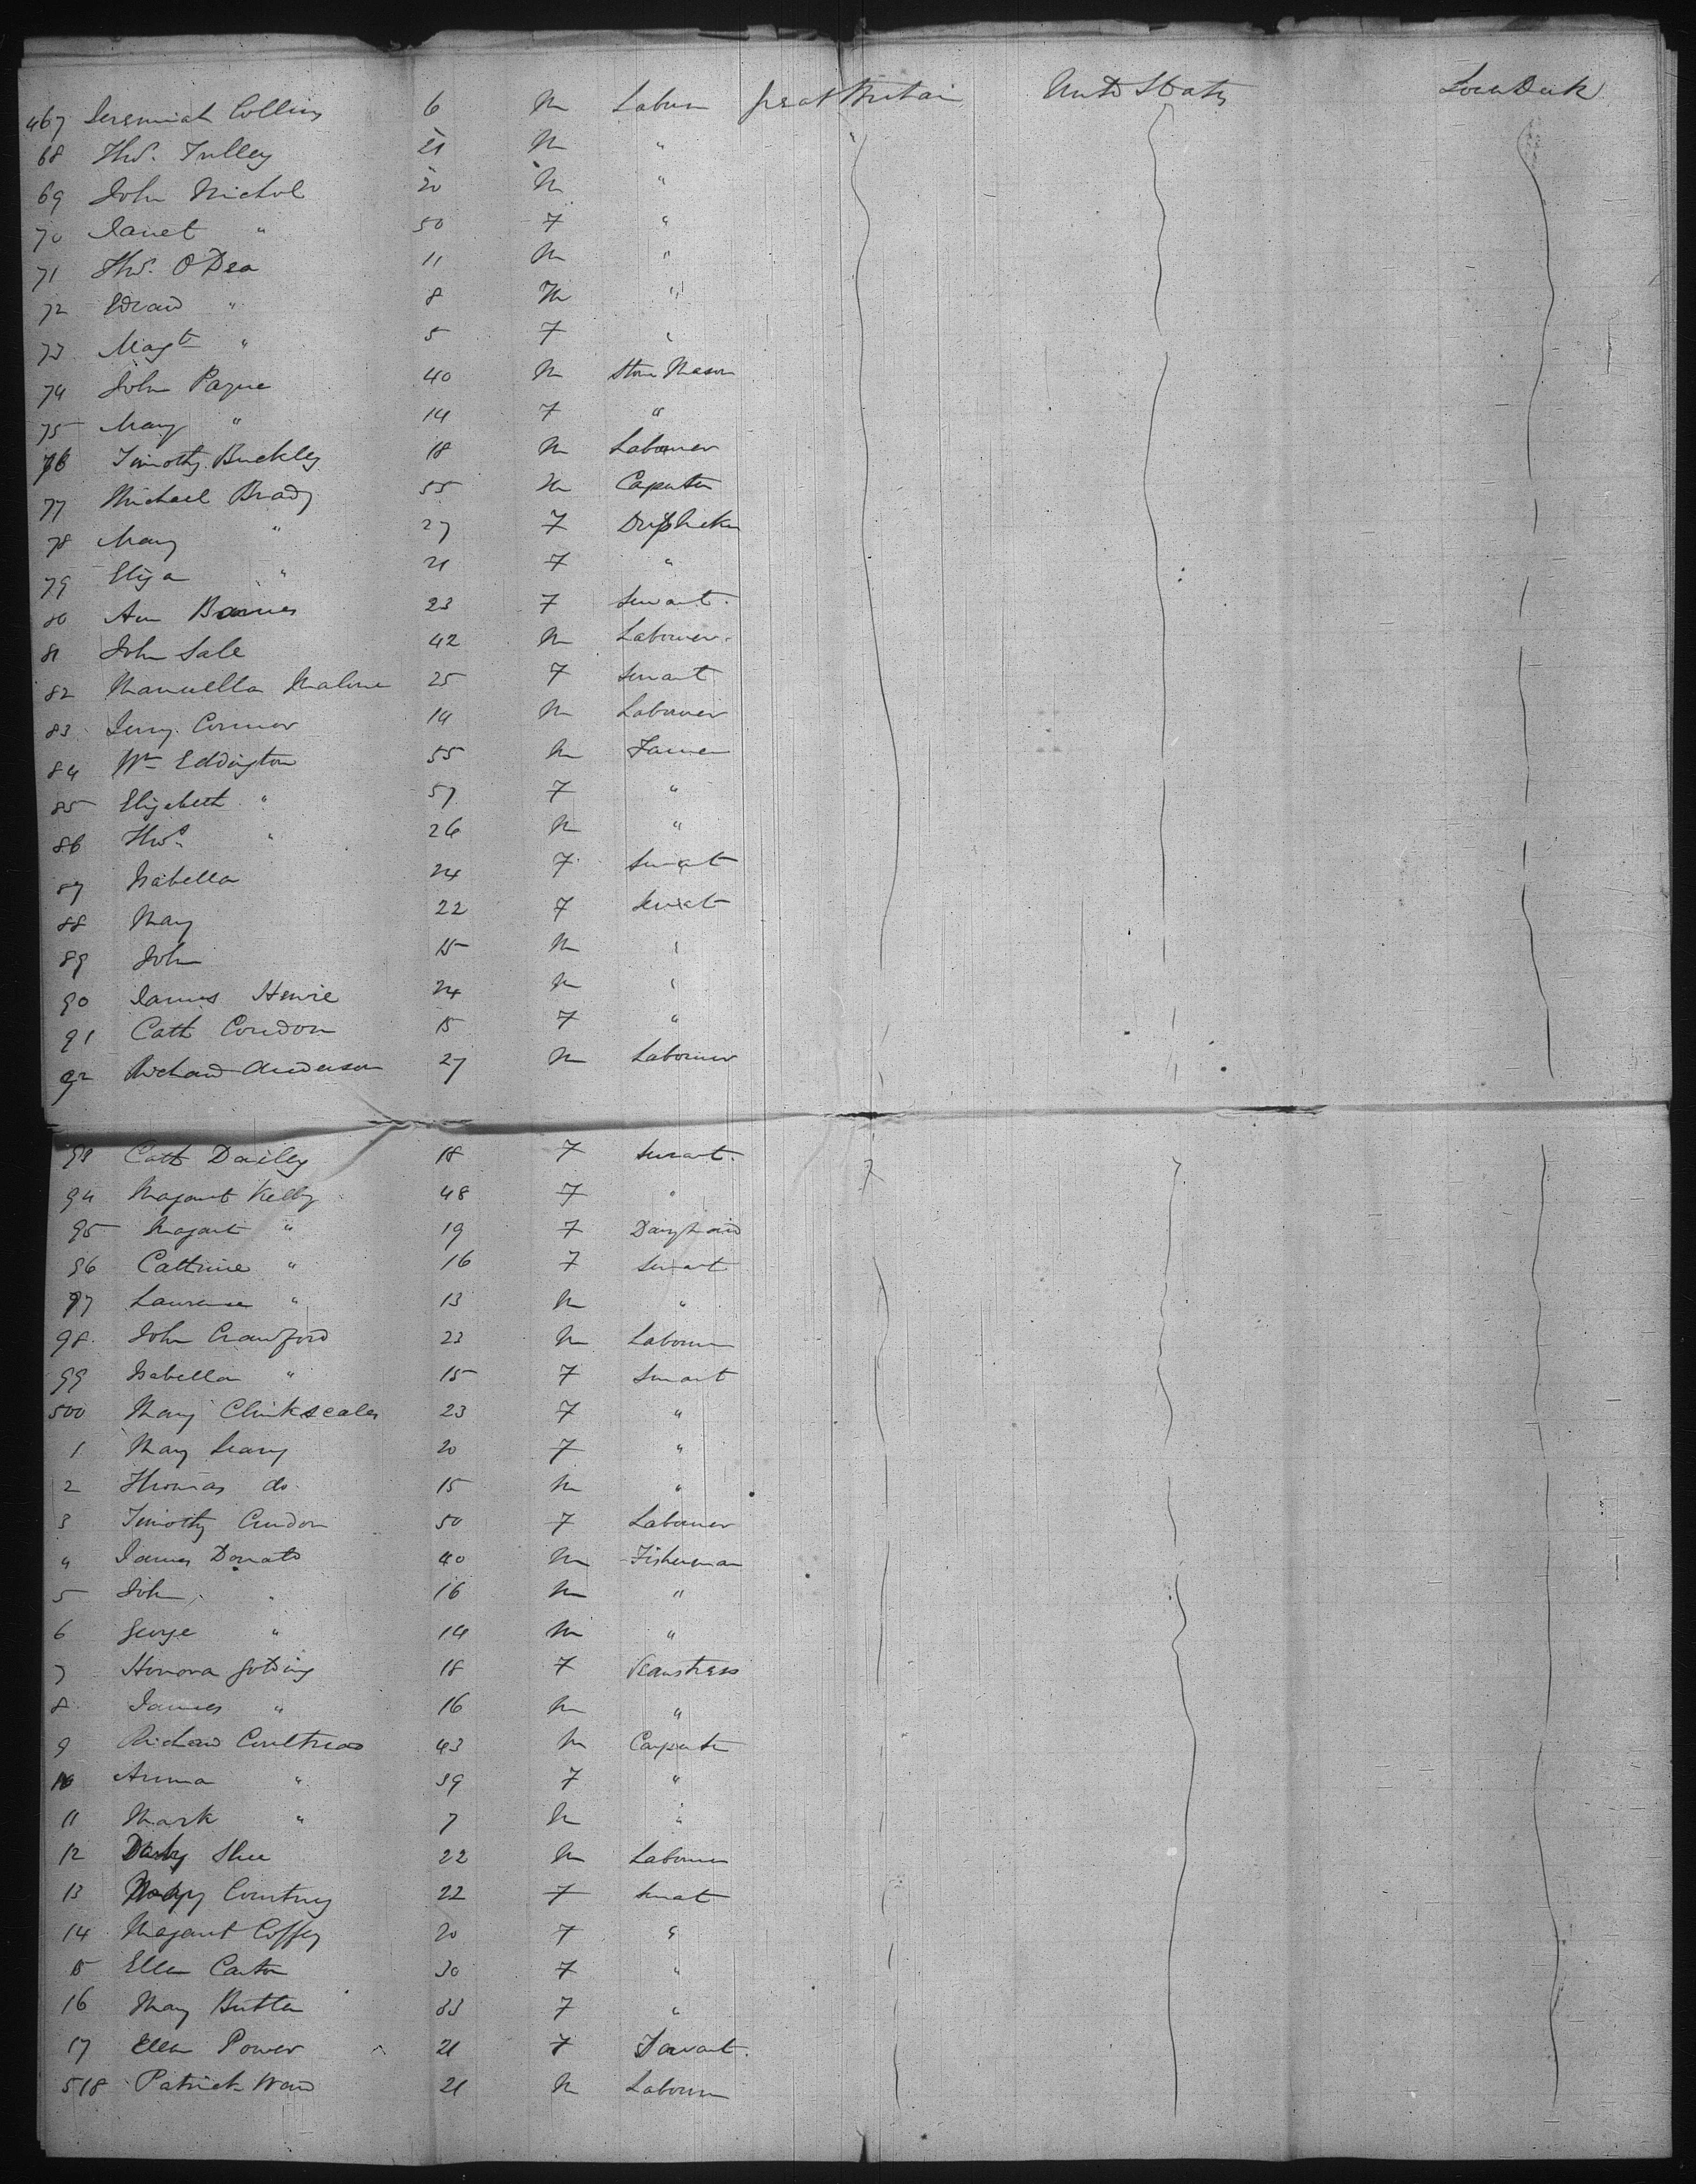 467 Jeremiah Collins 6 M Labourer Great Britain United States Lower Deck
68 Thos. Tulley 21 M "
69 John Nichol 20 M "
70 Janet " 50 F "
71 Thos. O'Dea 11 M "
72 Edwad " 8 M "
73 Magt " 5 F "
74 John Payne 40 M Stone Mason
75 Mary " 14 F "
76 Timothy Buckley 18 M Labourer
77 Michael Brady 55 M Carpenter
78 Mary " 27 F
79 Eliza " 21 F "
80 Ann Barnes 23 F Servant.
81 John Sale 42 M Labourer.
82 Malone 25 F Servant
83 Jerry Connor 14 M Labourer
84 Wm Eddington 55 M Farmer
85 Elizabeth " 57 F "
86 Thos. " 26 M "
87 Isabella 24 F Servant
88 Mary 22 F Servant
89 John 15 M "
90 James 24 M "
91 Cath Condon 15 F "
92 Richard Anderson 27 M Labourer
93 Cath Dailey 18 F Servant.
94 Magaret Kelly 48 F "
95 Magaret " 19 F Dairymaid
96 Cathrine " 16 F Servant
97 Laurence " 13 M "
98. John Crawford 23 M Labourer
99 Isabella " 15 F Servant
500 Mary Clinkscales 23 F "
1 Mary Leary 20 F "
2 Thomas do. 15 M "
3 Timothy Condon 50 F Labourer
4 James 40 M Fisherman
5 John " 16 M "
6 George " 14 M "
7 Honora Golding 18 F Seamstress
8. James " 16 M "
9 Richard 43 M Carpenter
10 Anna " 39 F "
11 Mark " 7 M "
12 Darby Shea 22 M Labourer
13 Courtney 22 F Servant
14 Magaret Coffey 20 F "
15 Ellen Carton 30 F "
16 Mary Butler 33 F "
17 Ellen Power 21 F Servant.
518 Patrick Ward 21 M Labourer